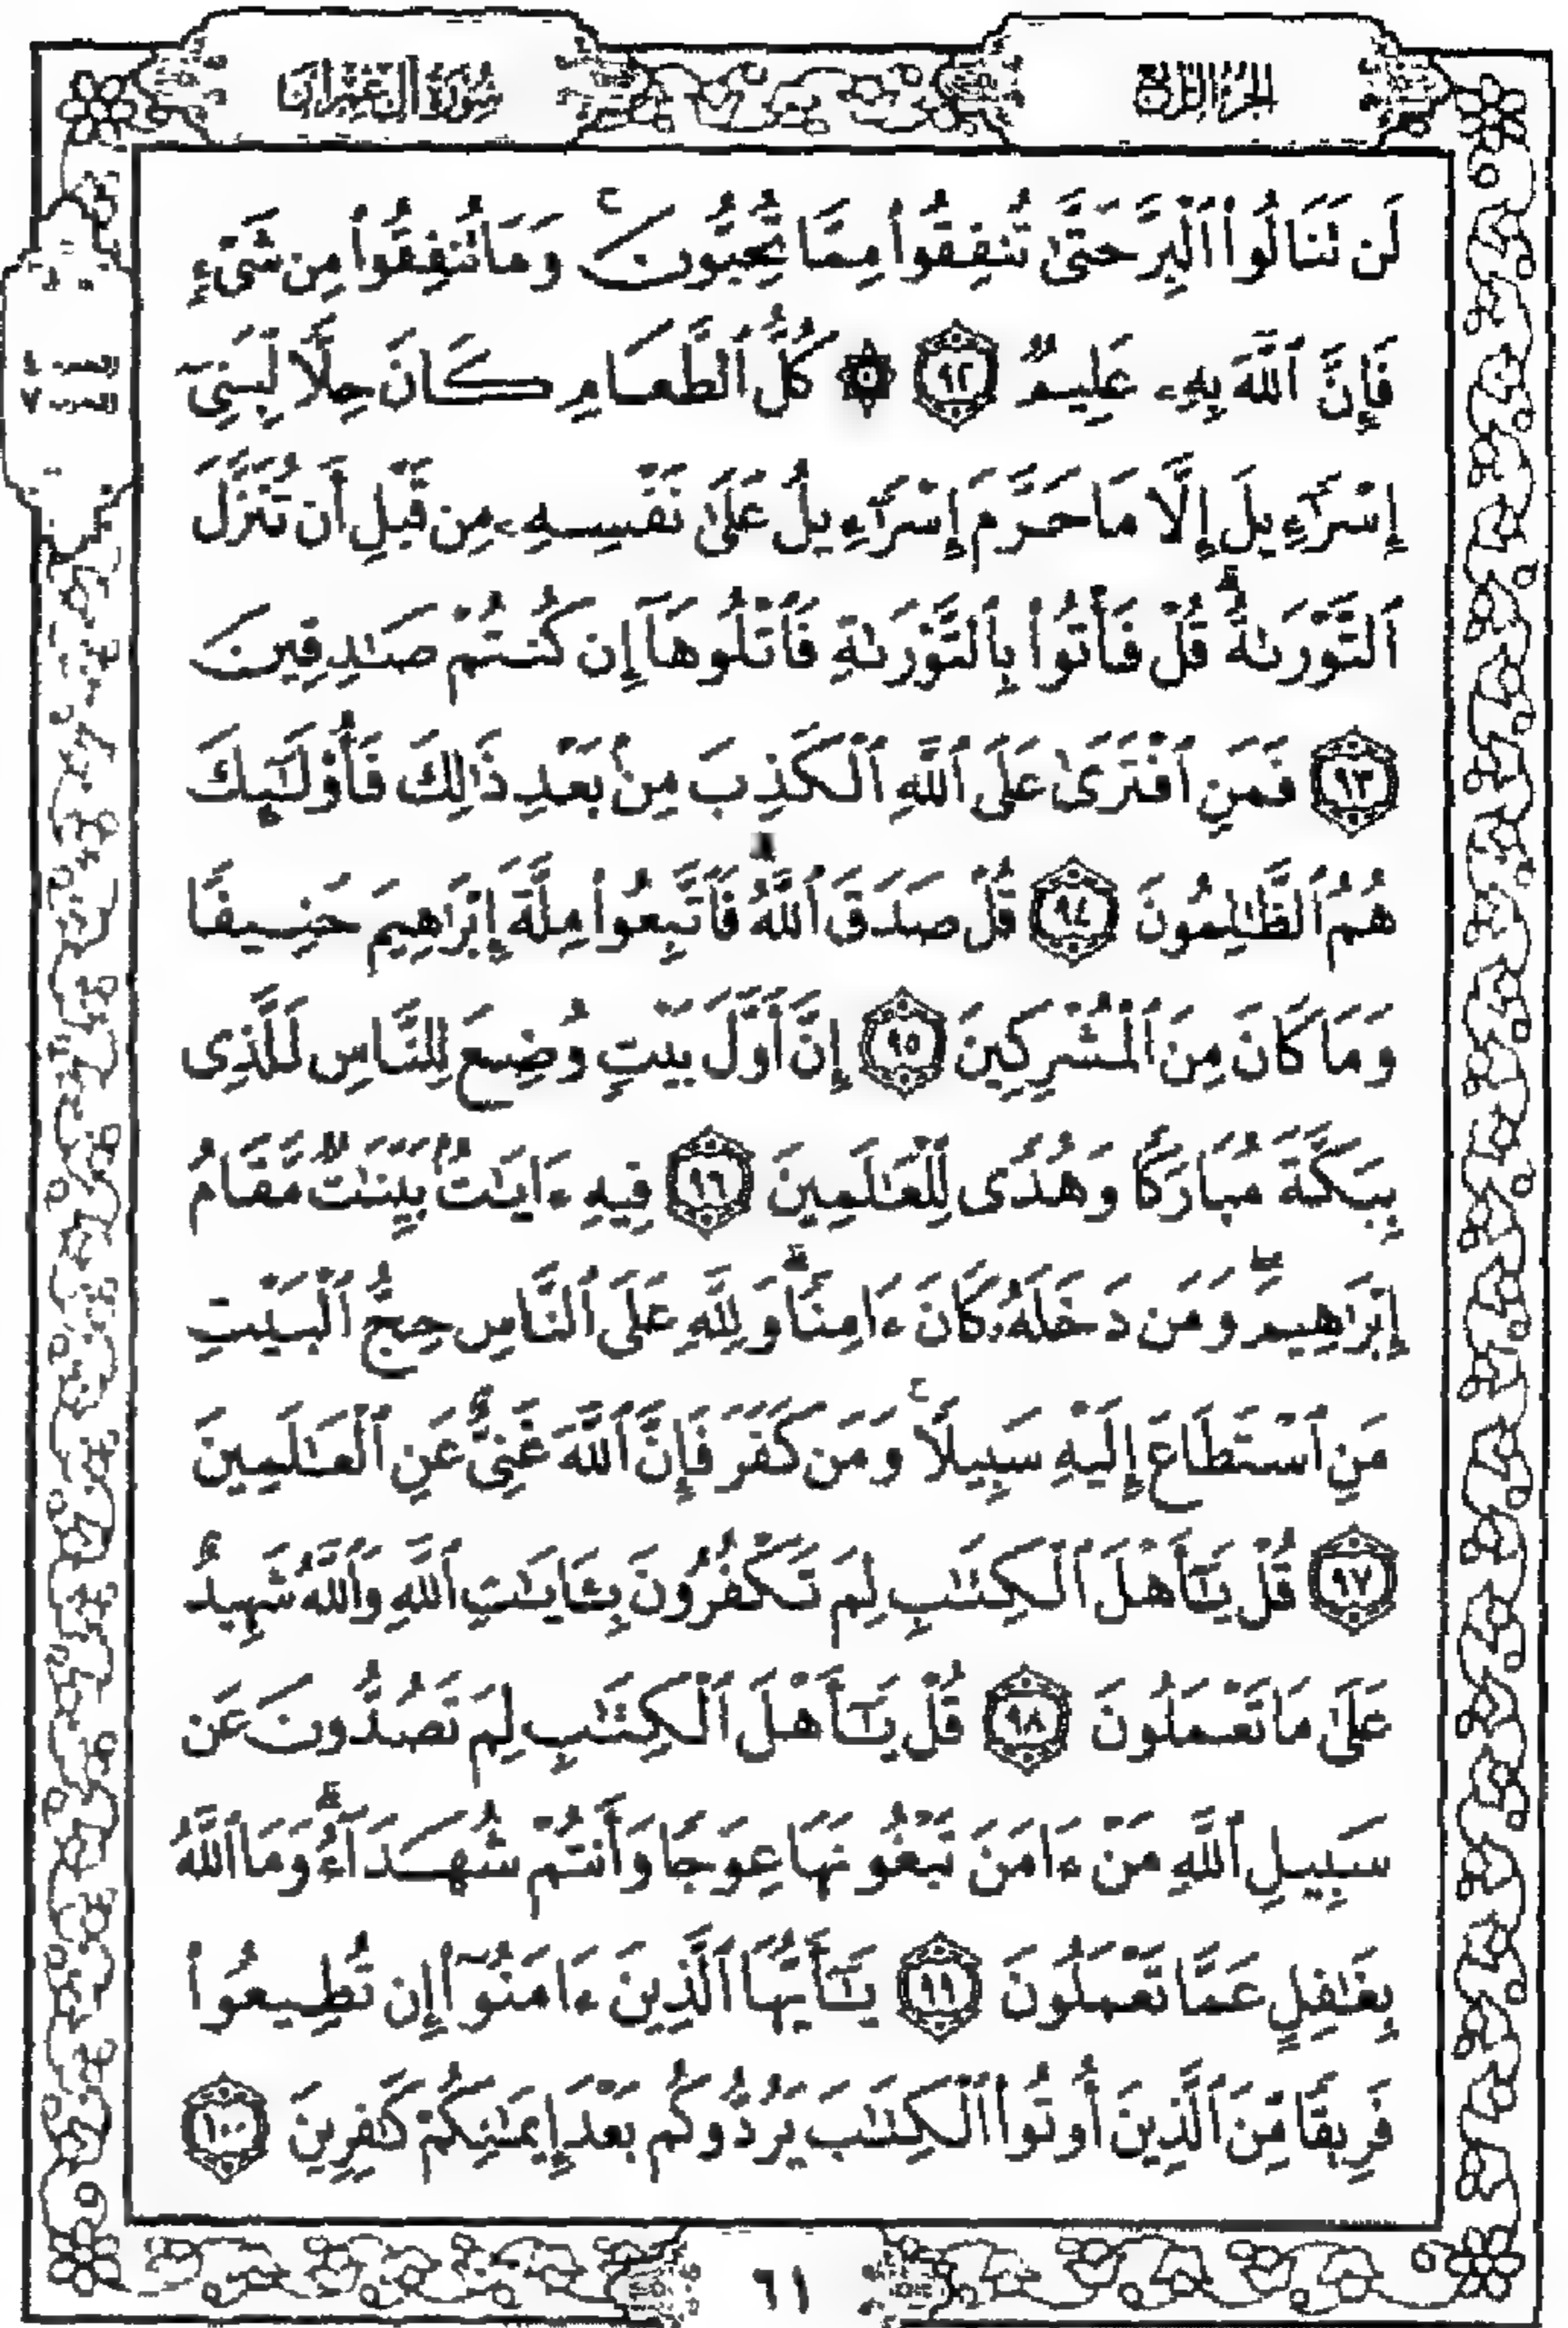 سُورَةُ آلِ عِمۡرَانَ الجُزۡءُ الرَّابِعُ
لَن تَنَالُوا۟ ٱلۡبِرَّ حَتَّىٰ تُنفِقُوا۟ مِمَّا تُحِبُّونَۚ وَمَا تُنفِقُوا۟ مِن شَىۡءٍ
فَإِنَّ ٱللَّهَ بِهِۦ عَلِيمٌ ٩٢ ۞ كُلُّ ٱلطَّعَامِ كَانَ حِلًّا لِّبَنِىٓ
إِسۡرَٰٓءِيلَ إِلَّا مَا حَرَّمَ إِسۡرَٰٓءِيلُ عَلَىٰ نَفۡسِهِۦ مِن قَبۡلِ أَن تُنَزَّلَ
ٱلتَّوۡرَىٰةُۗ قُلۡ فَأۡتُوا۟ بِٱلتَّوۡرَىٰةِ فَٱتۡلُوهَآ إِن كُنتُمۡ صَٰدِقِينَ
٩٣ فَمَنِ ٱفۡتَرَىٰ عَلَى ٱللَّهِ ٱلۡكَذِبَ مِنۢ بَعۡدِ ذَٰلِكَ فَأُو۟لَٰٓئِكَ
هُمُ ٱلظَّٰلِمُونَ ٩٤ قُلۡ صَدَقَ ٱللَّهُۗ فَٱتَّبِعُوا۟ مِلَّةَ إِبۡرَٰهِيمَ حَنِيفًا
وَمَا كَانَ مِنَ ٱلۡمُشۡرِكِينَ ٩٥ إِنَّ أَوَّلَ بَيۡتٍ وُضِعَ لِلنَّاسِ لَلَّذِى
بِبَكَّةَ مُبَارَكًا وَهُدًى لِّلۡعَٰلَمِينَ ٩٦ فِيهِ ءَايَٰتٌۢ بَيِّنَٰتٌ مَّقَامُ
إِبۡرَٰهِيمَۖ وَمَن دَخَلَهُۥ كَانَ ءَامِنًاۗ وَلِلَّهِ عَلَى ٱلنَّاسِ حِجُّ ٱلۡبَيۡتِ
مَنِ ٱسۡتَطَاعَ إِلَيۡهِ سَبِيلًاۚ وَمَن كَفَرَ فَإِنَّ ٱللَّهَ غَنِىٌّ عَنِ ٱلۡعَٰلَمِينَ
٩٧ قُلۡ يَٰٓأَهۡلَ ٱلۡكِتَٰبِ لِمَ تَكۡفُرُونَ بِـَٔايَٰتِ ٱللَّهِ وَٱللَّهُ شَهِيدٌ
عَلَىٰ مَا تَعۡمَلُونَ ٩٨ قُلۡ يَٰٓأَهۡلَ ٱلۡكِتَٰبِ لِمَ تَصُدُّونَ عَن
سَبِيلِ ٱللَّهِ مَنۡ ءَامَنَ تَبۡغُونَهَا عِوَجًا وَأَنتُمۡ شُهَدَآءُۗ وَمَا ٱللَّهُ
بِغَٰفِلٍ عَمَّا تَعۡمَلُونَ ٩٩ يَٰٓأَيُّهَا ٱلَّذِينَ ءَامَنُوٓا۟ إِن تُطِيعُوا۟
فَرِيقًا مِّنَ ٱلَّذِينَ أُوتُوا۟ ٱلۡكِتَٰبَ يَرُدُّوكُم بَعۡدَ إِيمَٰنِكُمۡ كَٰفِرِينَ ١٠٠
٦١